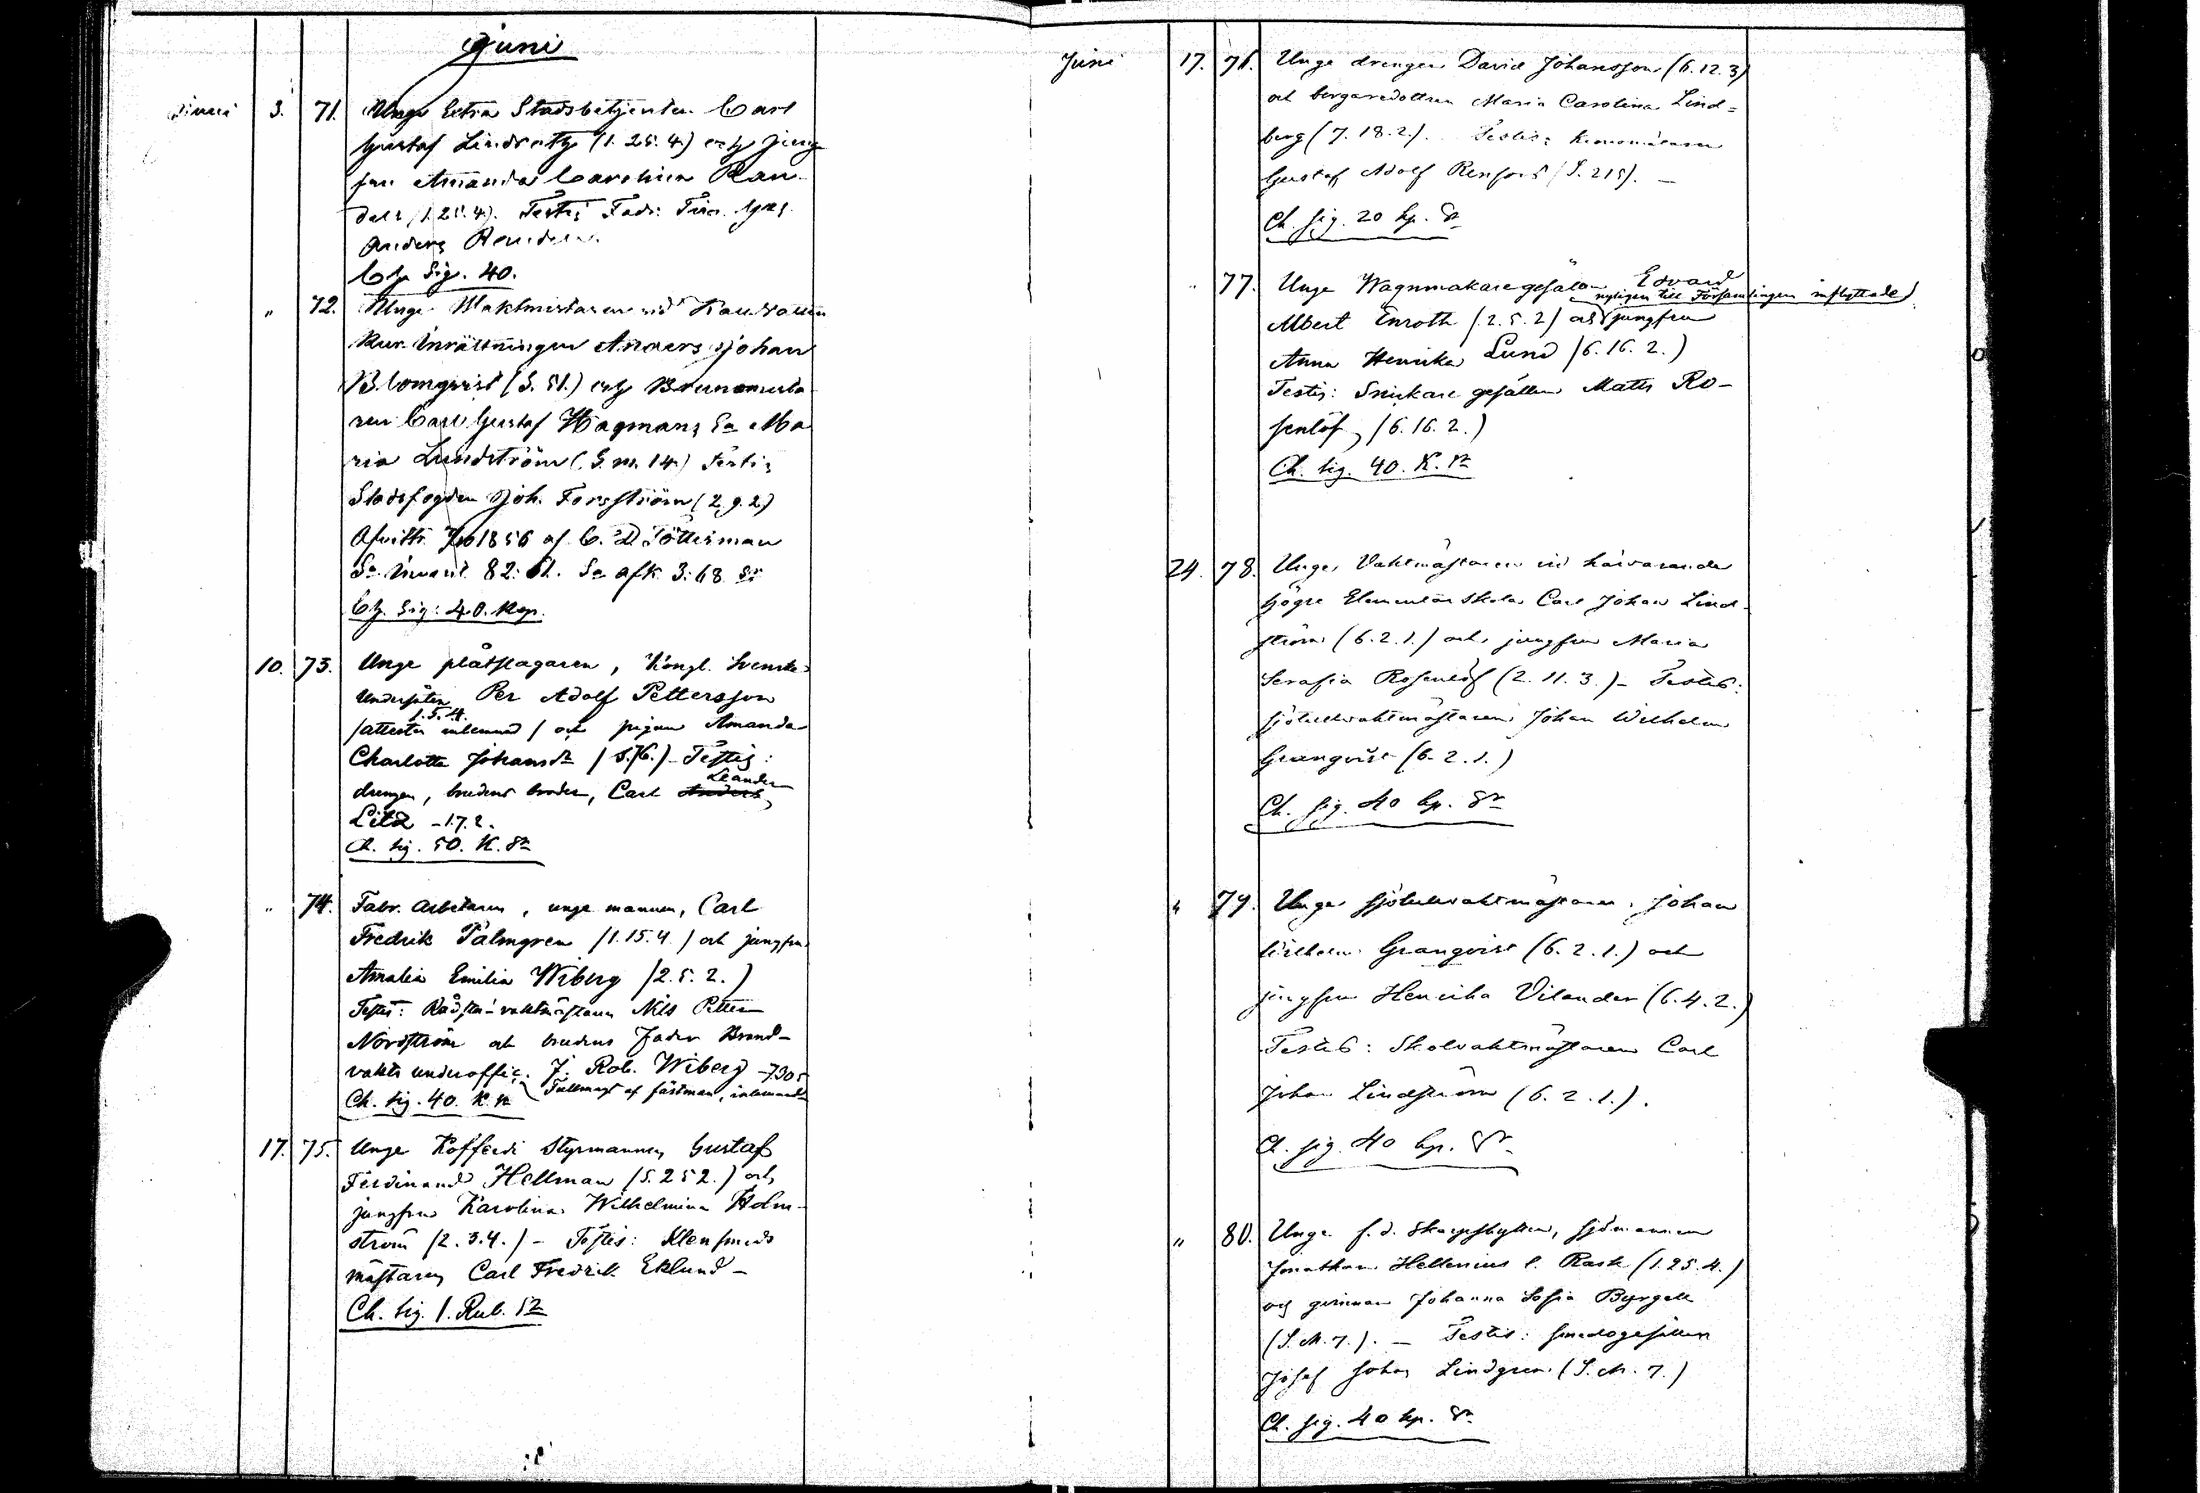 Juni
Juni 3. 71. Unge Extra Stadsbetjenten Carl
Gustaf Lindroth (1. 25. 4) och jung
frun Amanda Carolina Ran-
delin (1. 25. 4). Testis
Anders Randelin
Ch. Sig. 40.
" 72. Unge Waktmästaren vid
Kur-Inrättningen Anders Johan
Blomqvist (S. 51.) och
ren Carl Gustaf Wagmans Ea Ma
ria Lundström (S. m. 14) Testis
Stadsfogden Joh. Forsström (2. 9. 2)
1856 af C. D.
Sa Invent. 82: 61. Sa afk. 3: 68 Sr
Ch. Sig: 40. Kop.
10. 73. Unge plåtslagaren, Kongl. Svenske
Undersåten Per Adolf Pettersson
1. 5. 4.
/attester inlemnad/ och pigan Amanda
Charlotta Johansdr / S. 76.) - Testis:
drengen, brudens broder, Carl Anders
Leander
Litz - 1. 7. 2.
Ch. sig. 50. K. Sr
" 74. Fabr. arbetaren, unge mannen, Carl
Fredrik Palmgren /1. 15. 4./ och jungfrun
Amalia Emilia Wiberg /2. 5. 2.)
Testes: Rådstu-vaktmästaren Nils Petter
Nordström och brudens fader Brand-
vakts underoffic. J. Rob. Wiberg - 7.30.5
Ch. sig. 40. K. Sr Fullmagt af fästman, inlemnad
17. 75. Unge Kofferdi Styrmannen Gustaf
Ferdinand Hellman (S. 252.) och
jungfrun Karolina Wilhelmina Holm-
ström /2. 3. 4.) - Testis: Klensmeds
mästaren Carl Fredrik Eklund -
Ch. sig. 1. Rub. Sr
Juni 17. 76. Unge drengen David Johansson (6. 12. 3)
och borgaredottren Maria Carolina Lind=
berg (7. 18. 2.). Testis:
Gustaf Adolf Renfors (S. 215). -
Ch. sig. 20 kp. Sr
" 77. Unge Wagnmakaregesälen Edvard
nyligen till Församlingen inflyttade)
Albert Enroth /2. 5. 2/ och jungfrun
Anna Henrika Lund /6. 16. 2.)
Testis: Snickare gesällen Matts Ro-
senlöf, /6. 16. 2.)
Ch. sig. 40. K. Sr
24. 78. Unge Vaktmästaren vid härvarande
högre Elementar Skola Carl Johan Lind-
ström (6. 2. 1.) och jungfrun Maria
Serafia Rosenlöf (2. 11. 3.) - Testis:
sjötullvaktmästaren Johan Wilhelm
Granqvist (6. 2. 1.)
Ch. sig. 40 kp. Sr
" 79. Unge sjötullvaktmästaren Johan
Wilhelm Granqvist (6. 2. 1.) och
jungfrun Henrika Vilander (6. 4. 2.)
Testis: Skolvaktmästaren Carl
Johan Lindström (6. 2. 1.).
Ch. sig. 40 kp. Sr
" 80. Unge f. d. Skarpskytten, sjömannen
Jonathan Hellenius l. Rask (1. 25. 4.)
och qvinnan Johanna Sofia Byrgell
(S. M. 7.). - Testis: smedsgesällen
Josef Johan Lindgren (S. M. 7.)
Ch. sig. 40 kp. Sr